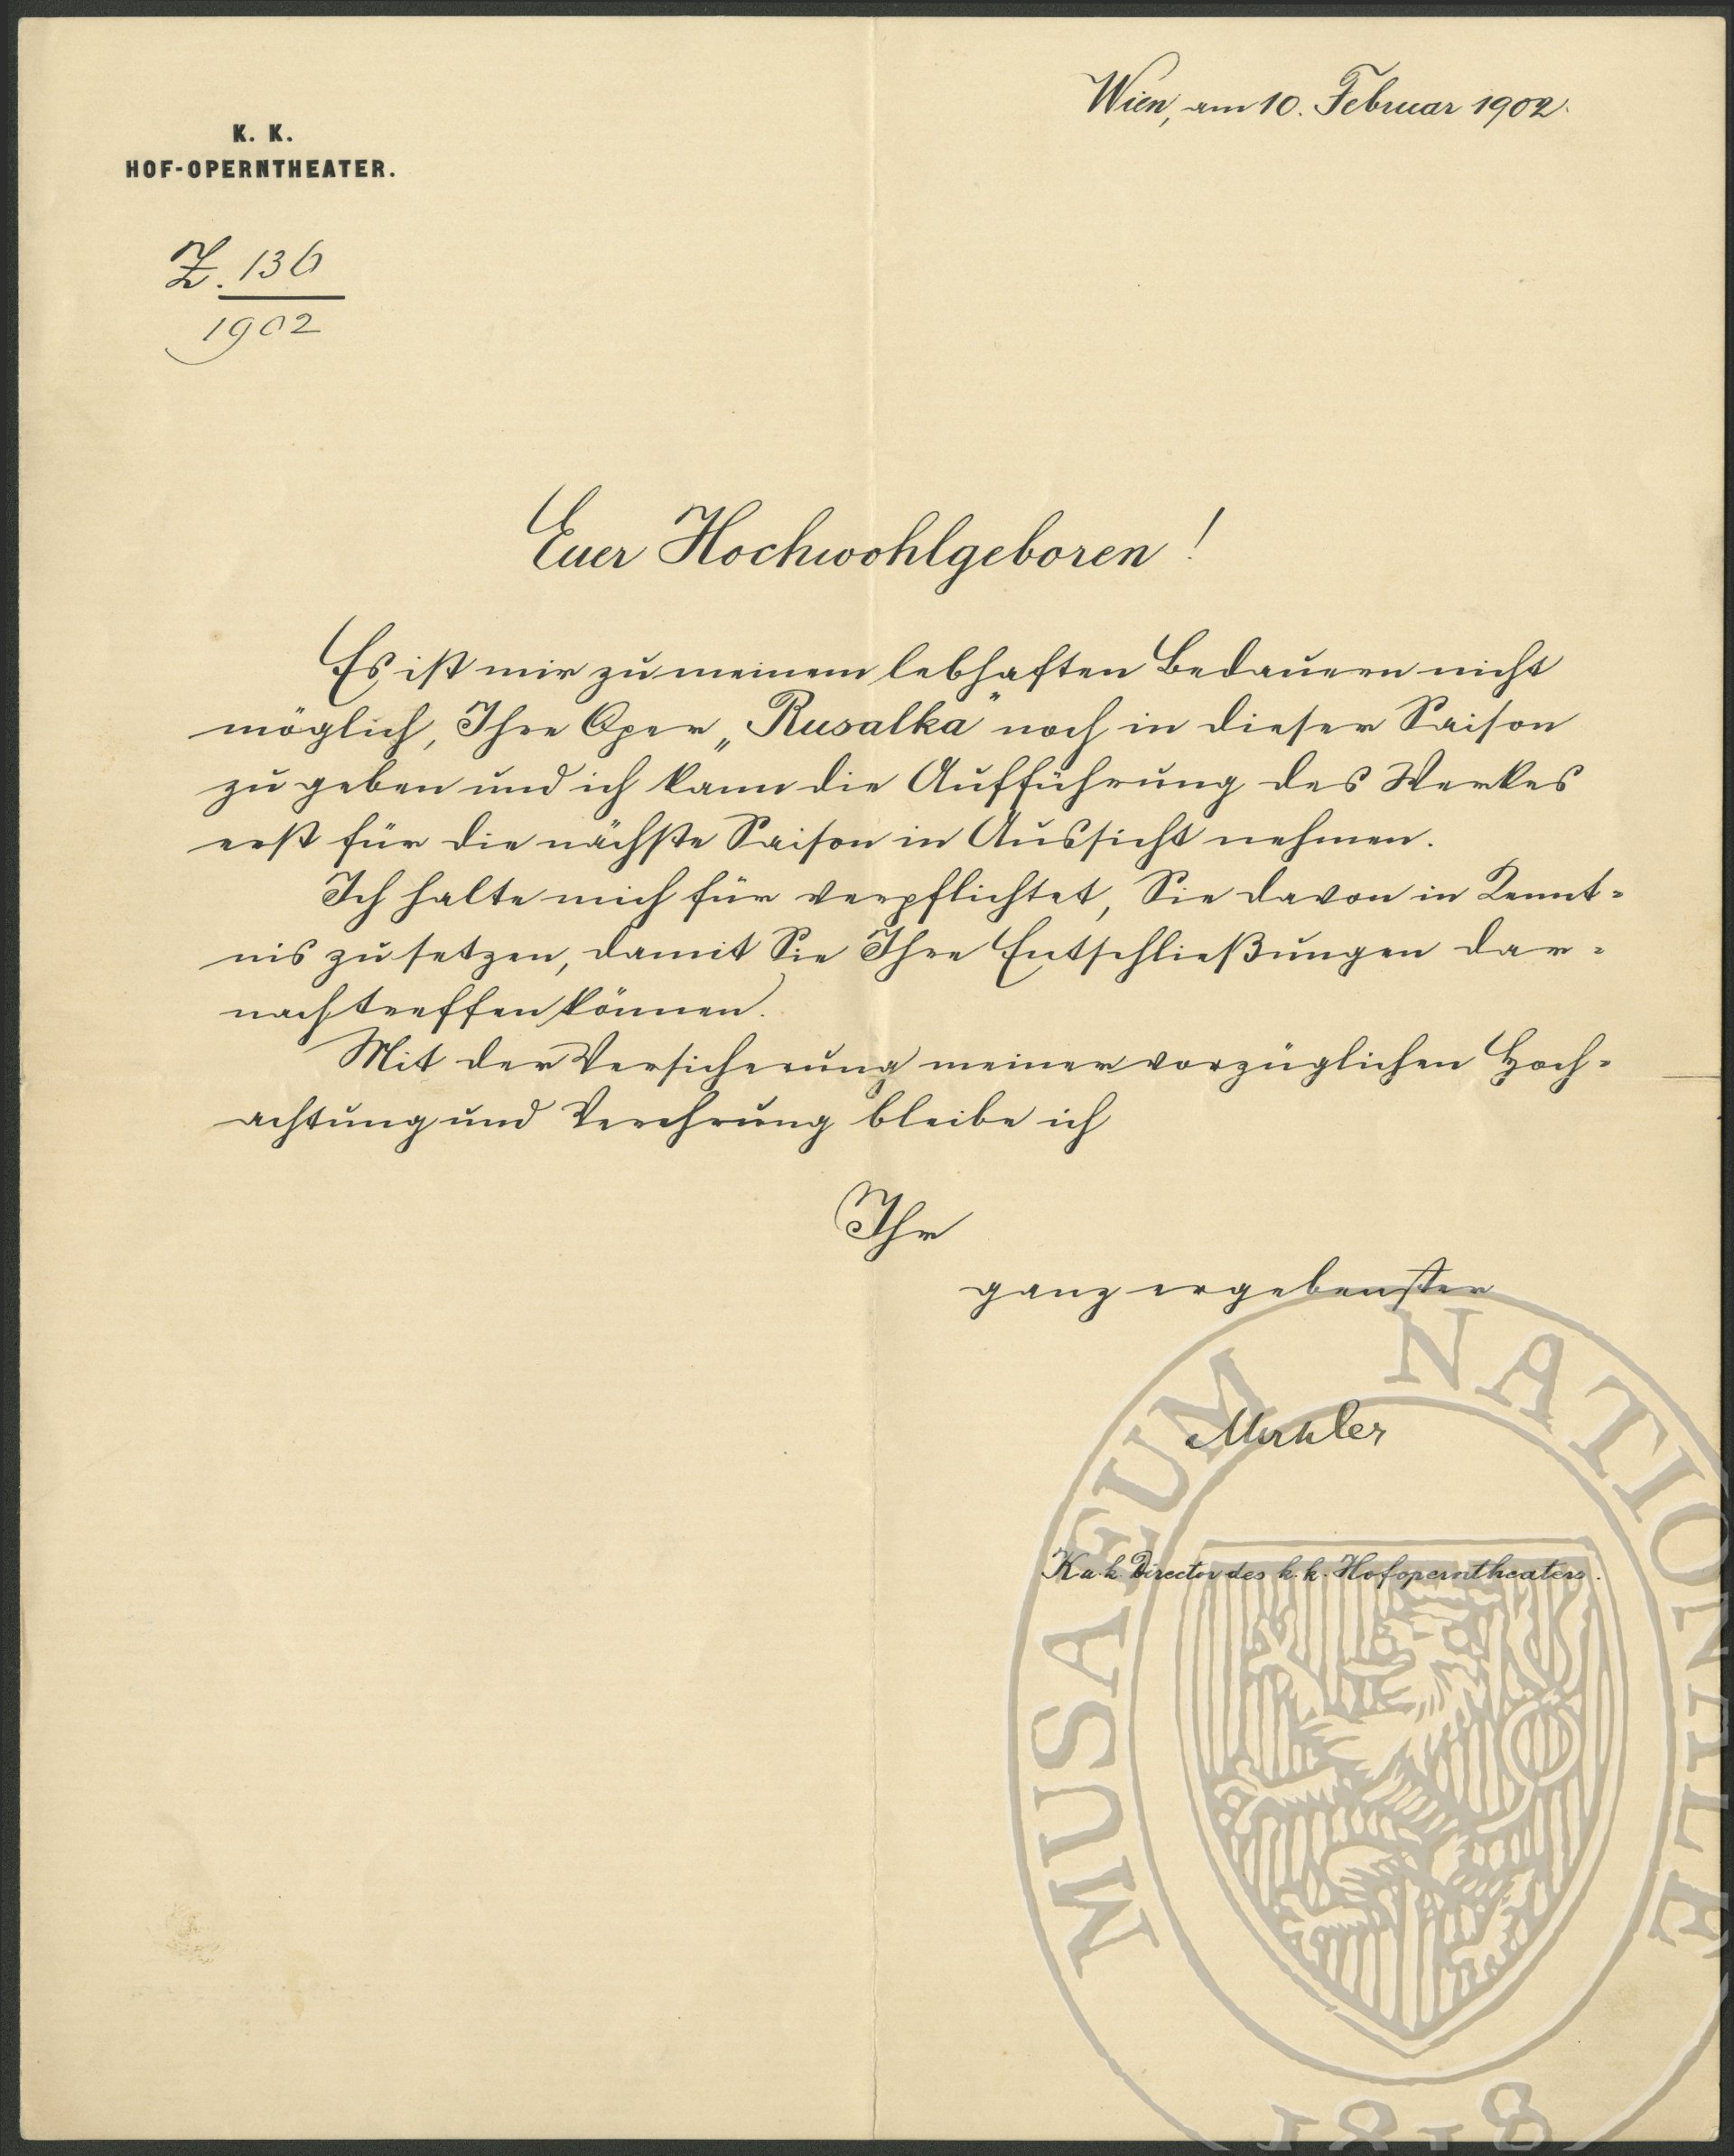 Wien, am 10. Februar 1902.
K. K.
HOF-OPERNTHEATER.
Z. 136
1902
Euer Hochwohlgeboren!
Es ist mir zu meinem lebhaften Bedauern nicht
möglich, Ihre Oper „Rusalka" noch in dieser Saison
zu geben und ich kann die Aufführung des Werkes
erst für die nächste Saison in Aussicht nehmen.
Ich halte mich für verpflichtet, Sie davon in Kennt=
nis zu setzen, damit Sie Ihre Entschließungen dar=
nach treffen können.
Mit der Versicherung meiner vorzüglichen Hoch=
achtung und Verehrung bleibe ich
Ihr
ganz ergebenster
Mahler
K. u. k. Director des k. k. Hofoperntheaters.
MUSAEUM NATIONALE
1818